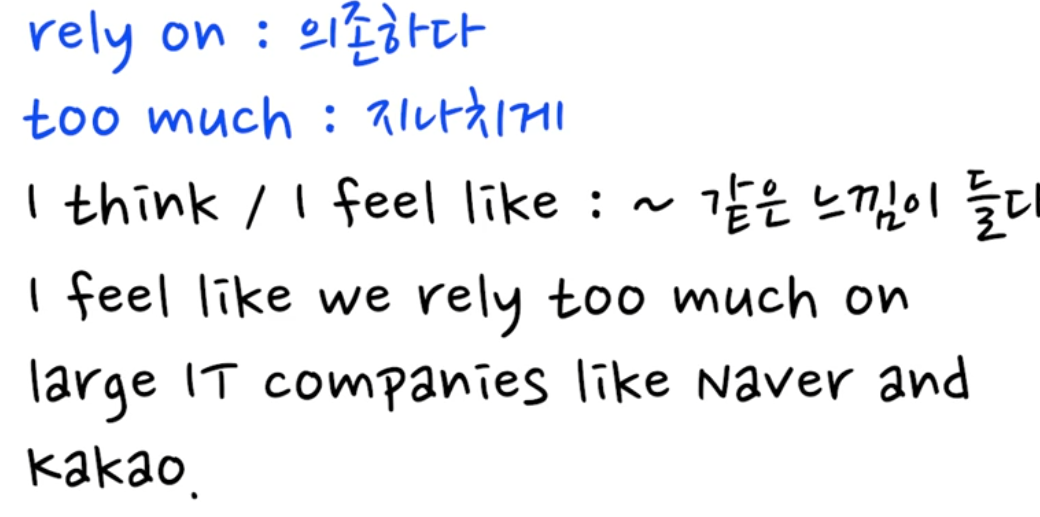 rely on : 의존하다
too much : 지나치게
I think / I feel like : ~ 같은 느낌이 들다
I feel like we rely too much on
large IT companies like Naver and
Kakao.